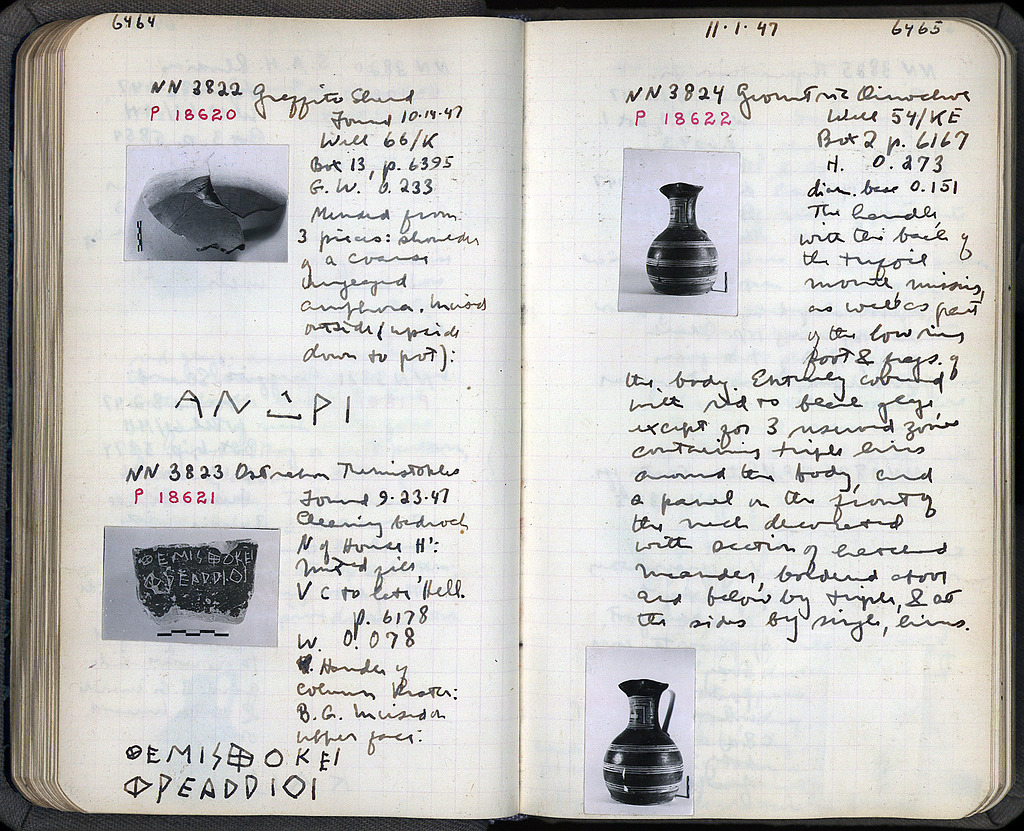 6464
NN 3822 Graffito Sherd
P 18620
Found 10·19·47
Well 66/K
Box 13, p. 6395
G. W. 0.233
Mended from
3 pieces: shoulder
of a coarse
unglazed
amphora. Incised
outside (upside
down to pot):
NN 3823 Ostrakon Themistokles
P 18621
Found 9·23·47
Cleaning bedrock
N of House H':
mixed fill
V C to late Hell.
p. 6178
W. 0.078
Handle of
column krater:
B.G. Incised on
upper face:
11·1·47
6465
NN 3824 Geometric Oinochoe
P 18622
Well 54/KE
Box 2 p. 6167
H. 0.273
diam. base 0.151
The handle,
with the back of
the trefoil
mouth missing,
as well as part
of the low ring
foot & frags. of
the body. Entirely covered
with red to black glaze,
except for 3 reserved zones
containing triple lines
around the body, and
a panel on the front of
the neck decorated
with section of
meander, bordered above
and below by triple, & at
the sides by single, lines.